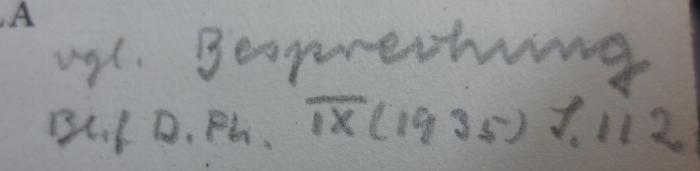 .A
vgl. Besprechung
Bl.f. D. Ph. IX (1935) S. 112